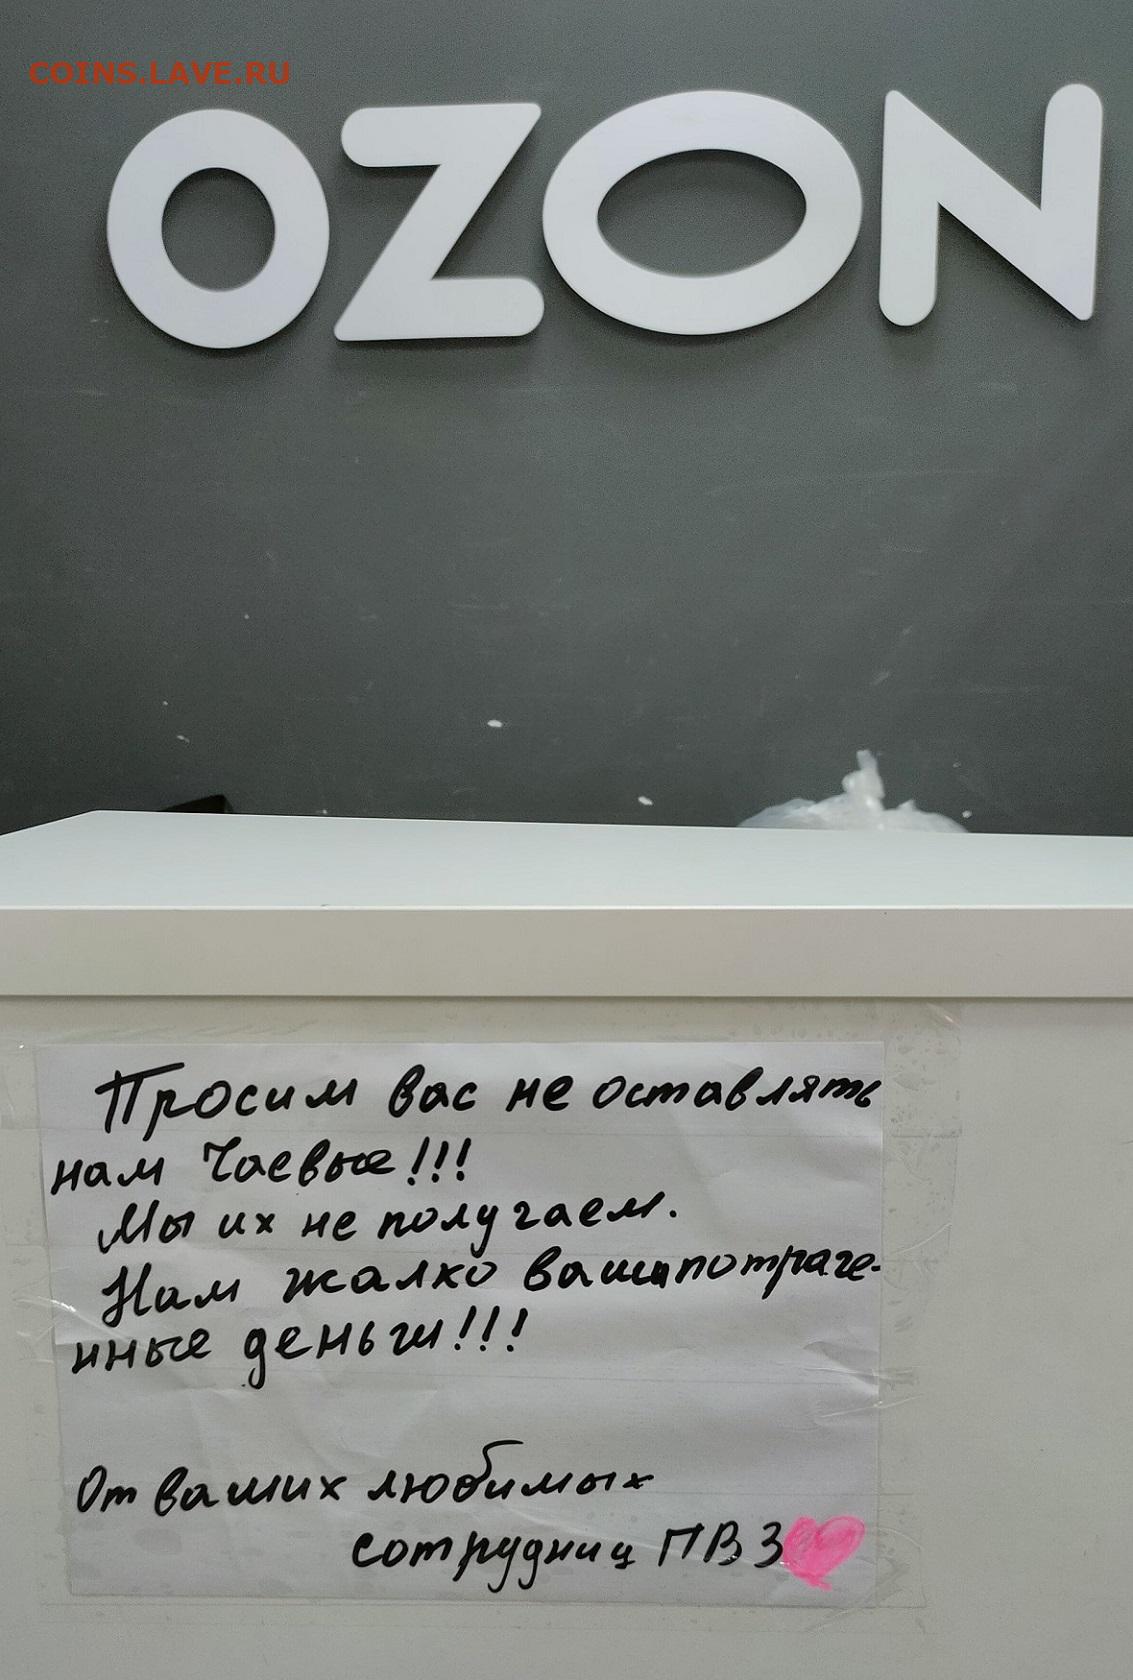 COINS.LAVE.RU
OZON
Просим вас не оставлять
нам Чаевые!!!
Мы их не получаем.
Нам жалко ваши потраче-
нные деньги!!!
От ваших любимых
сотрудниц ПВЗ